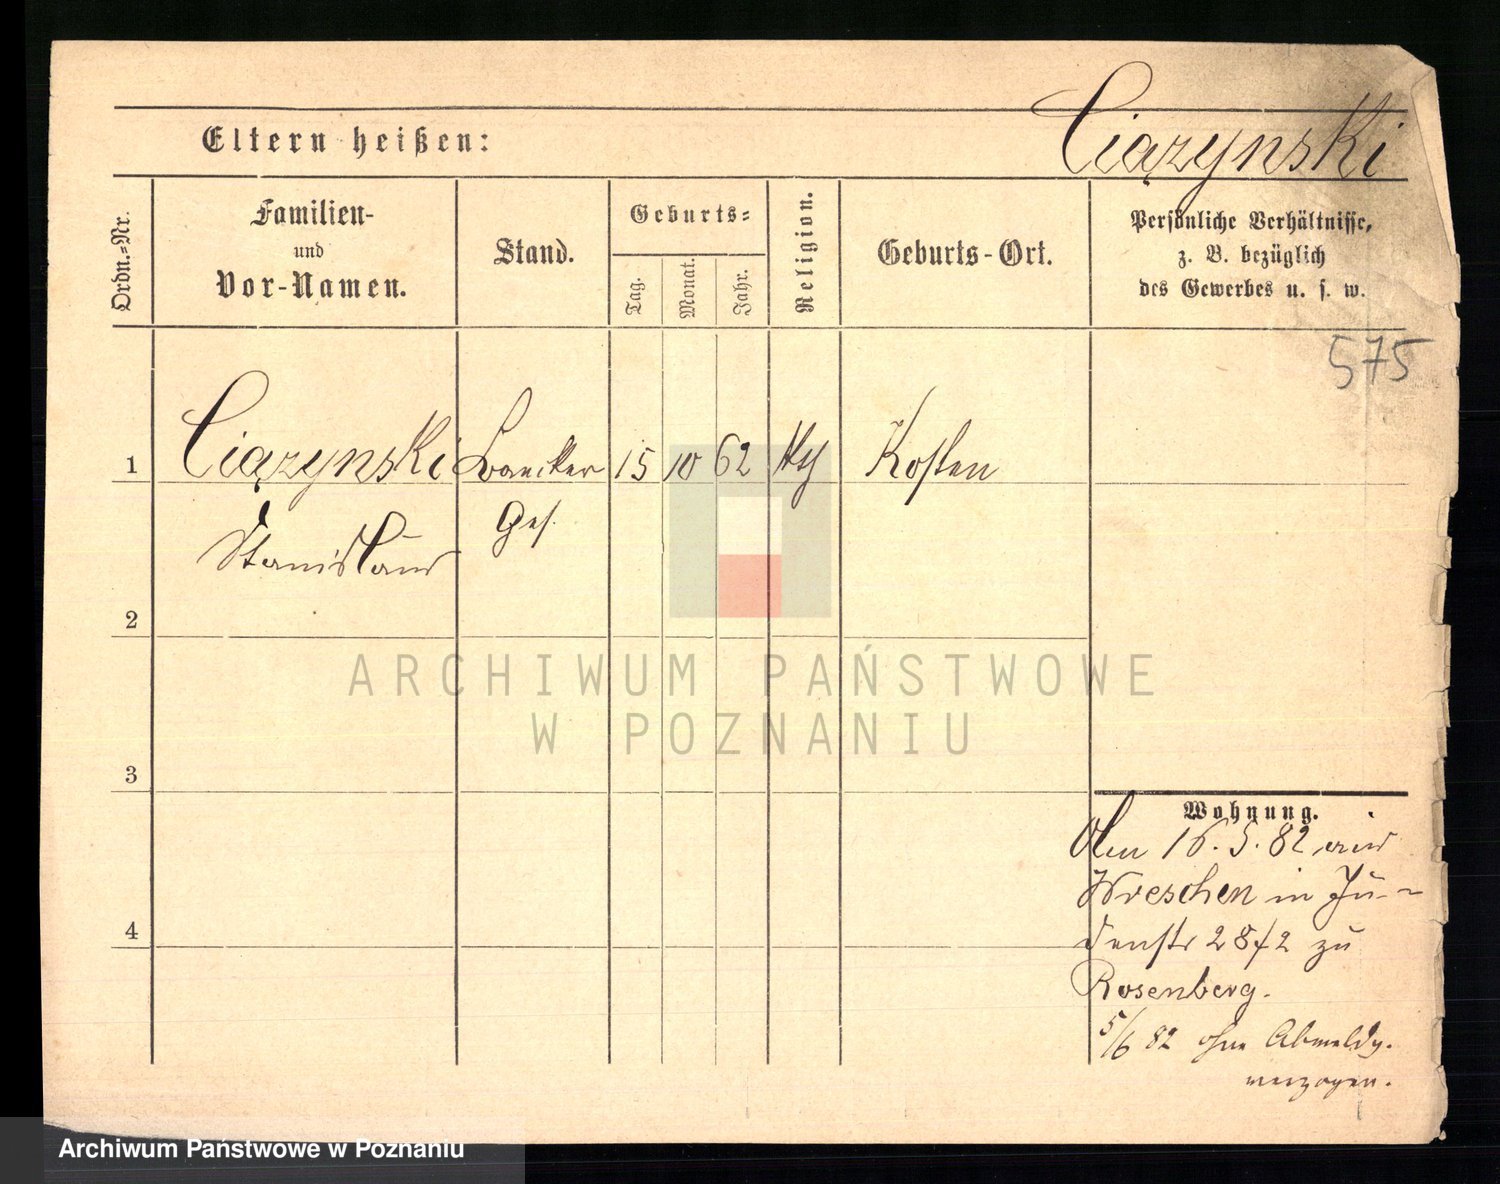 Ciązynski
Eltern heißen:
Ordn.-Nr.
Familien-
und
Vor-Namen.
Stand.
Geburts-
Tag.
Monat.
Jahr.
Religion.
Geburts-Ort.
Persönliche Verhältnisse,
z. B. bezüglich
des Gewerbes u. s. w.
575
1 Ciązynski 15 10 62 Kosten
Stanislaus
Ges.
2
3
4
Wohnung.
16. 5. 82
Wreschen in Ju-
denstr 28/2 zu
Rosenberg.
5/6 82 ohne Abmeldg.
verzogen.
ARCHIWUM PAŃSTWOWE
W POZNANIU
Archiwum Państwowe w Poznaniu